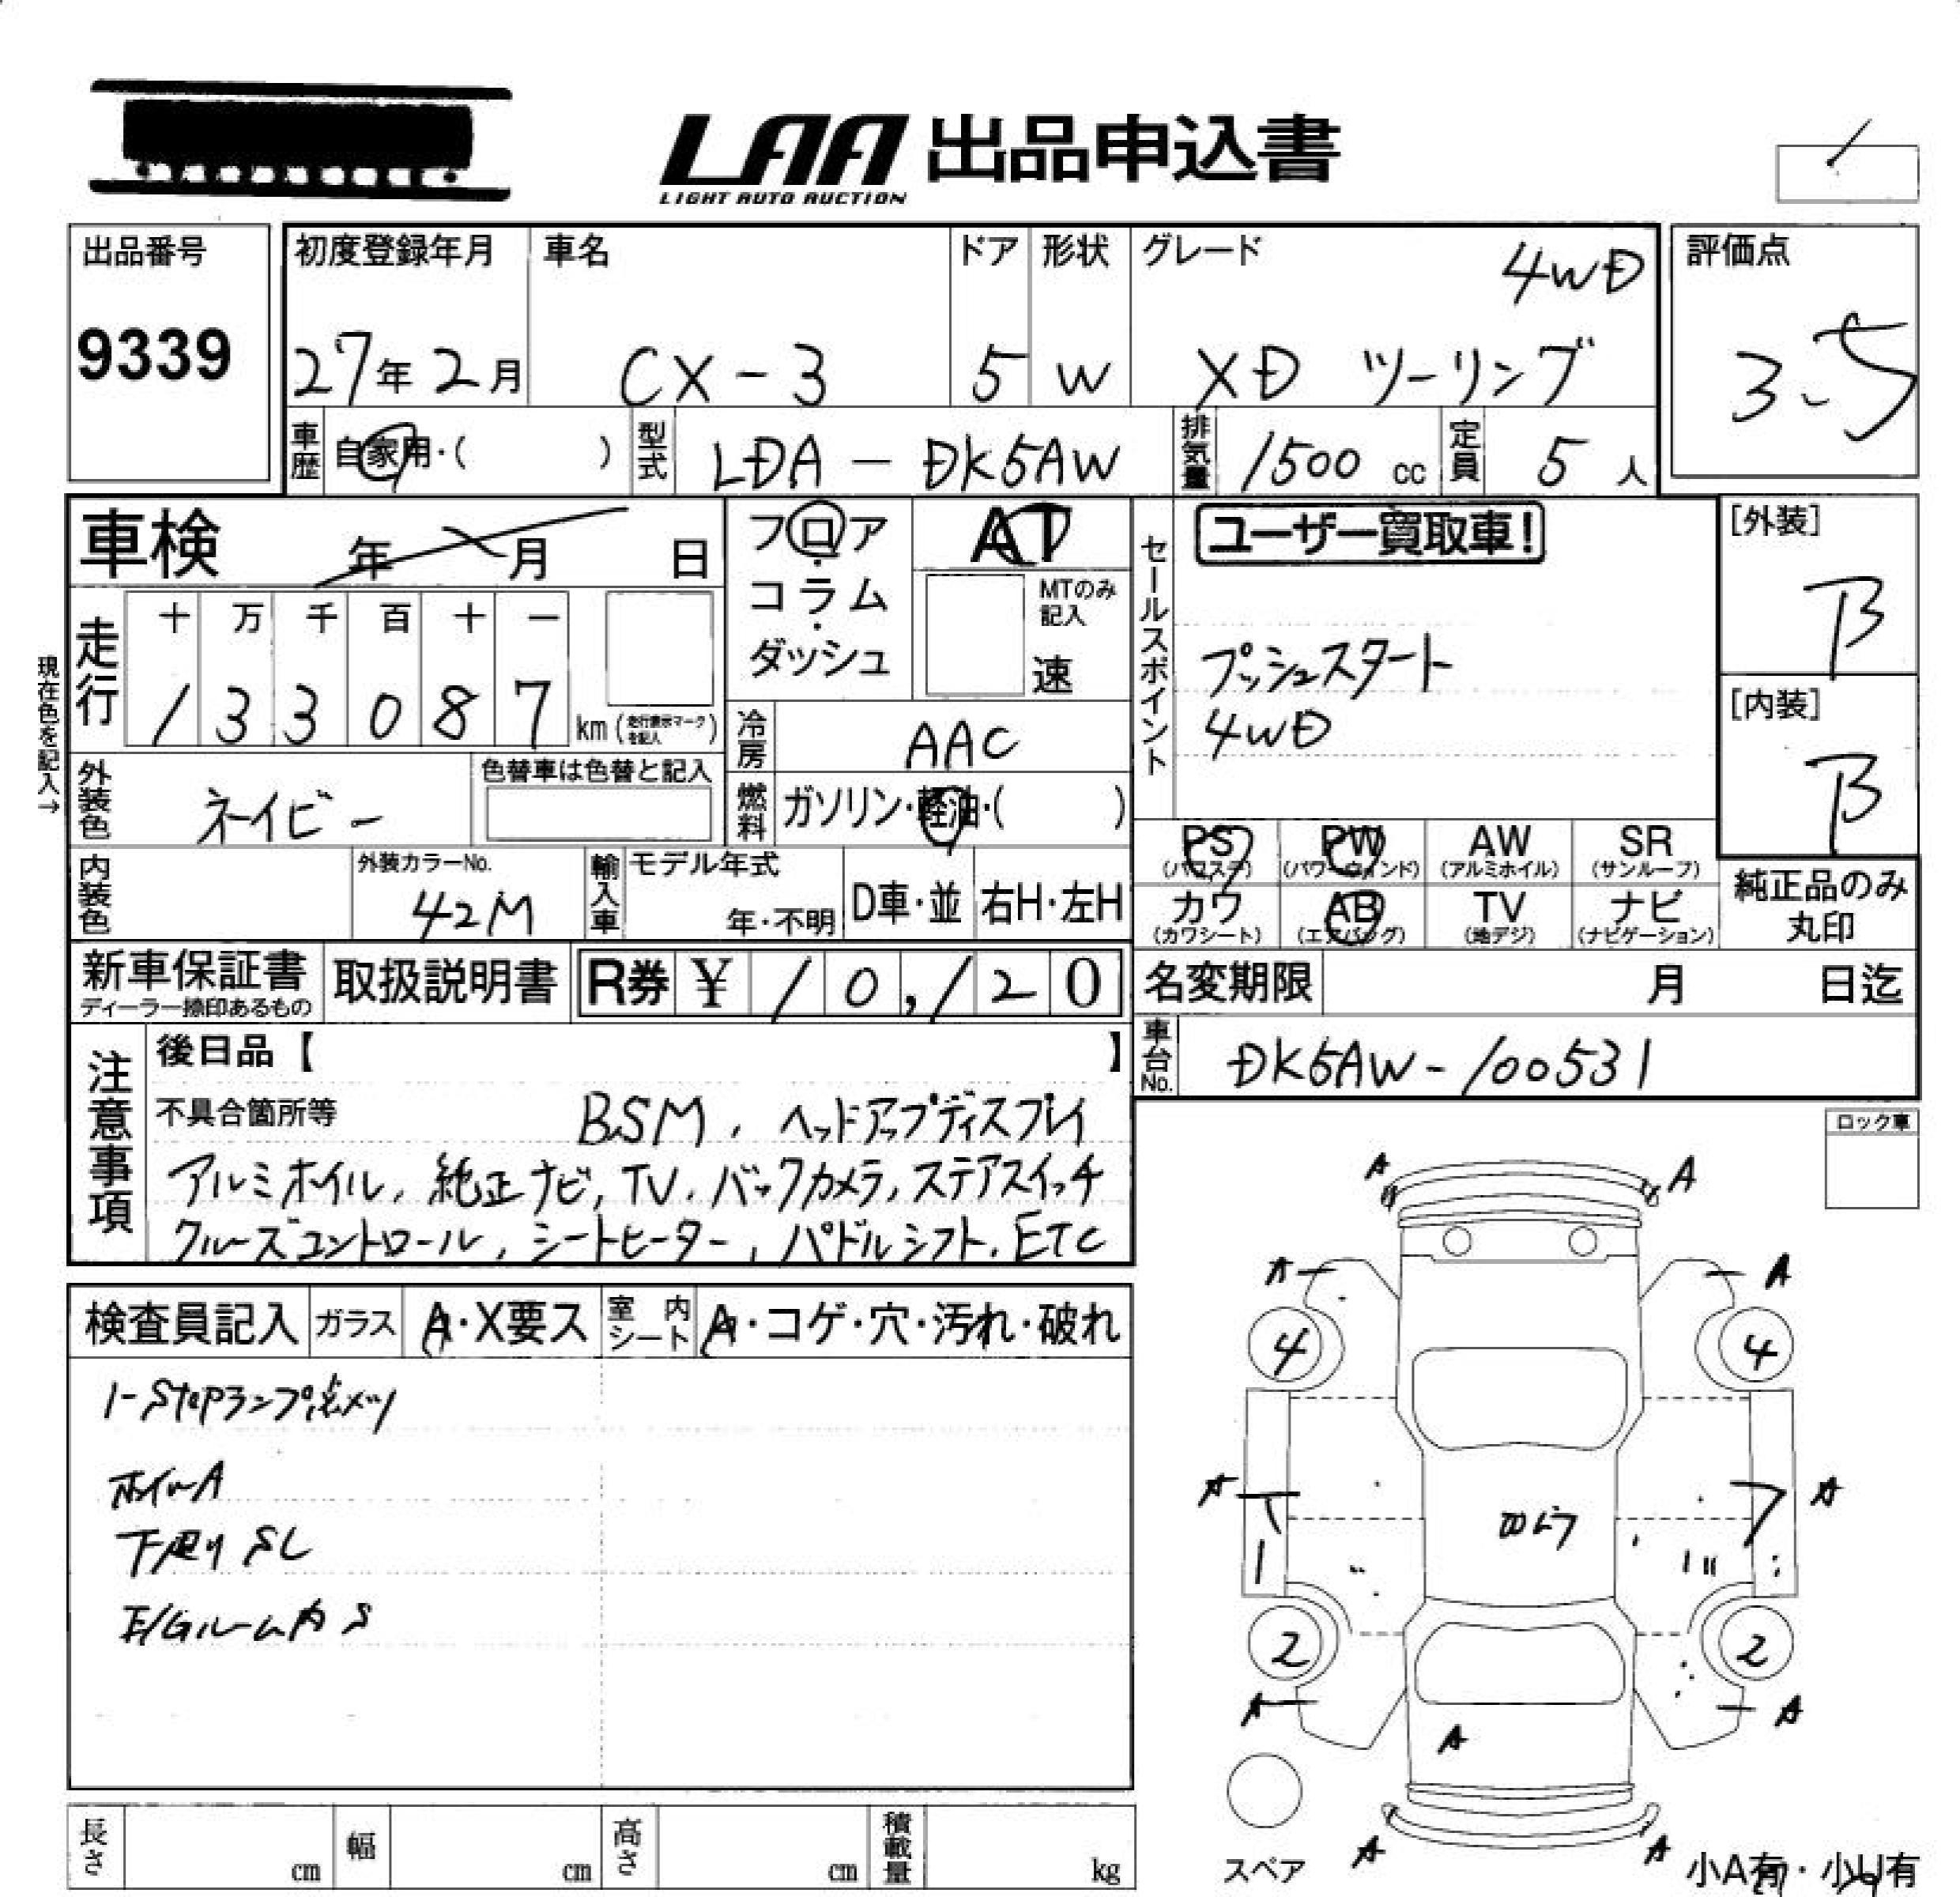 LAA 出品申込書
LIGHT AUTO AUCTION
出品番号
9339
初度登録年月
27年2月
車名
CX-3
ドア
5
形状
W
グレード
4WD
XD ツーリング
評価点
3.5
車歴 自家用・( )
型式 LDA-DK5AW
排気量 1500 cc
定員 5 人
車検 年 月 日
フロア・コラム・ダッシュ
AT
MTのみ記入
速
セールスポイント
ユーザー買取車!
プッシュスタート
4WD
[外装]
B
[内装]
B
現在色を記入→
走行
十 万 千 百 十 一
1 3 3 0 8 7 km (走行表示マークを記入)
冷房 AAC
外装色 ネイビー
色替車は色替と記入
燃料 ガソリン・軽油・( )
PS (パワステ)
PW (パワーウィンド)
AW (アルミホイル)
SR (サンルーフ)
カワ (カワシート)
AB (エアバッグ)
TV (地デジ)
ナビ (ナビゲーション)
純正品のみ丸印
内装色
外装カラーNo.
42M
輸入車
モデル年式
年・不明
D車・並
右H・左H
新車保証書
ディーラー捺印あるもの
取扱説明書
R券 ¥ 10,120
名変期限 月 日迄
車台No. DK5AW-100531
注意事項
後日品【 】
不具合箇所等
BSM, ヘッドアップディスプレイ
アルミホイル, 純正ナビ, TV, バックカメラ, ステアスイッチ
クルーズコントロール, シートヒーター, パドルシフト, ETC
ロック車
検査員記入
ガラス A・X要ス
室内シート A・コゲ・穴・汚れ・破れ
i-stepランプ点メツ
ホイルA
下廻りSL
E/Gルーム内S
A A
A A
4 4
A A
2 2
A A
A
A A
スペア
小A有・小U有
長さ cm
幅 cm
高さ cm
積載量 kg